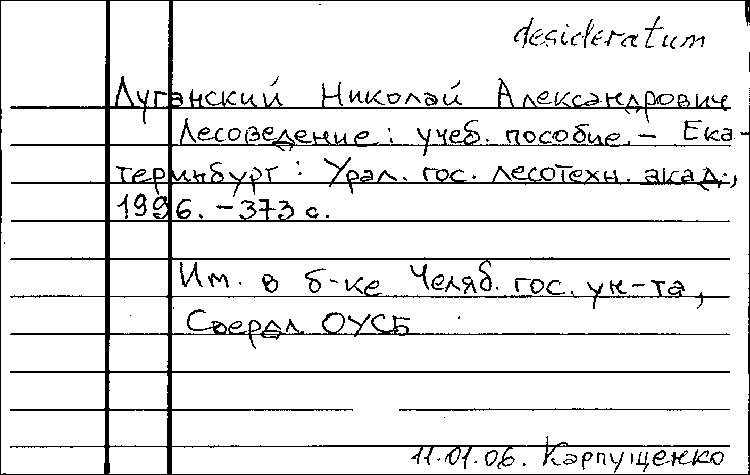 desideratum
Луганский Николай Александрович
Лесоведение: учеб. пособие. – Ека-
теринбург: Урал. гос. лесотехн. акад.,
1996. – 373 с.
Им. в б-ке Челяб. гос. ун-та,
Свердл. ОУСБ
11.01.06. Карпущенко